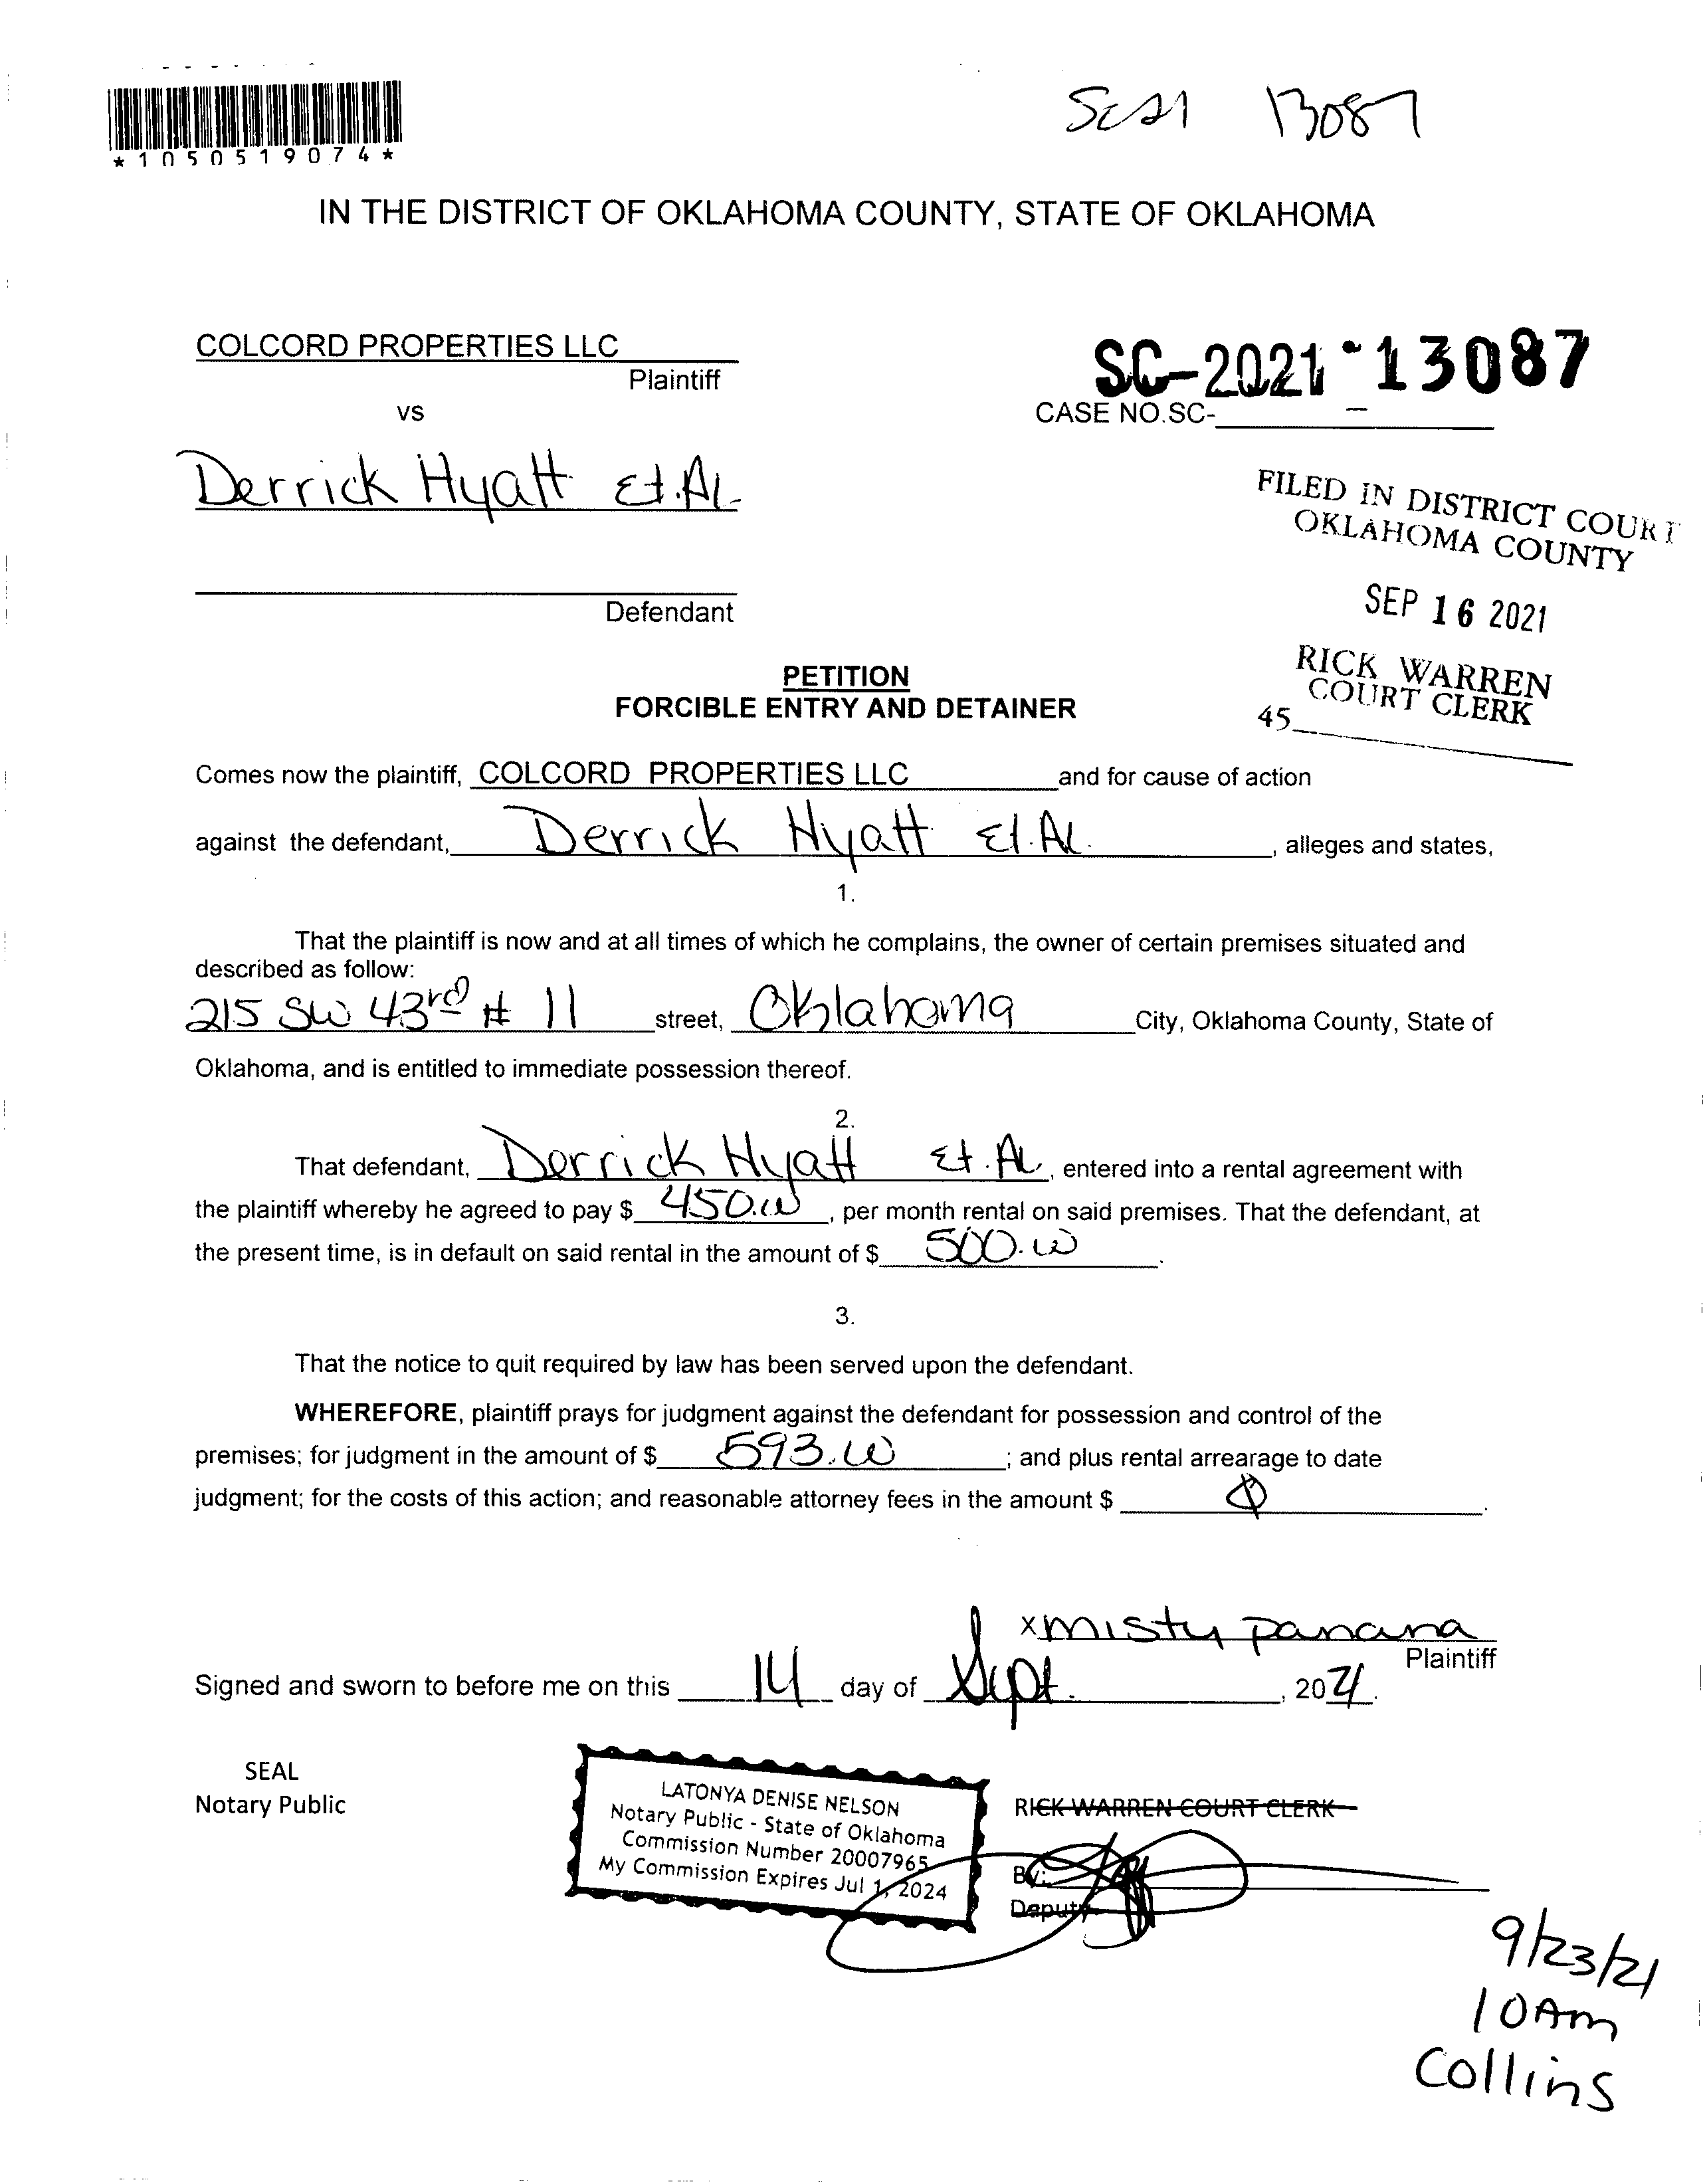 SC21 13087
*1050519074*
IN THE DISTRICT OF OKLAHOMA COUNTY, STATE OF OKLAHOMA
COLCORD PROPERTIES LLC
Plaintiff
vs
SC-2021-13087
CASE NO.SC-
Derrick Hyatt Et.Al.
Defendant
FILED IN DISTRICT COURT
OKLAHOMA COUNTY
SEP 16 2021
RICK WARREN
COURT CLERK
45
PETITION
FORCIBLE ENTRY AND DETAINER
Comes now the plaintiff, COLCORD PROPERTIES LLC and for cause of action
against the defendant, Derrick Hyatt Et.Al. , alleges and states,
1.
That the plaintiff is now and at all times of which he complains, the owner of certain premises situated and
described as follow:
215 SW 43rd # 11 street, Oklahoma City, Oklahoma County, State of
Oklahoma, and is entitled to immediate possession thereof.
2.
That defendant, Derrick Hyatt Et.Al. , entered into a rental agreement with
the plaintiff whereby he agreed to pay $ 450.00 , per month rental on said premises. That the defendant, at
the present time, is in default on said rental in the amount of $ 500.00 .
3.
That the notice to quit required by law has been served upon the defendant.
WHEREFORE, plaintiff prays for judgment against the defendant for possession and control of the
premises; for judgment in the amount of $ 593.00 ; and plus rental arrearage to date
judgment; for the costs of this action; and reasonable attorney fees in the amount $ 0 .
x misty panana
Plaintiff
Signed and sworn to before me on this 14 day of Sept. , 2021.
SEAL
Notary Public
LATONYA DENISE NELSON
Notary Public - State of Oklahoma
Commission Number 20007965
My Commission Expires Jul 1, 2024
RICK WARREN COURT CLERK
By:
Deputy
9/23/21
10Am
Collins